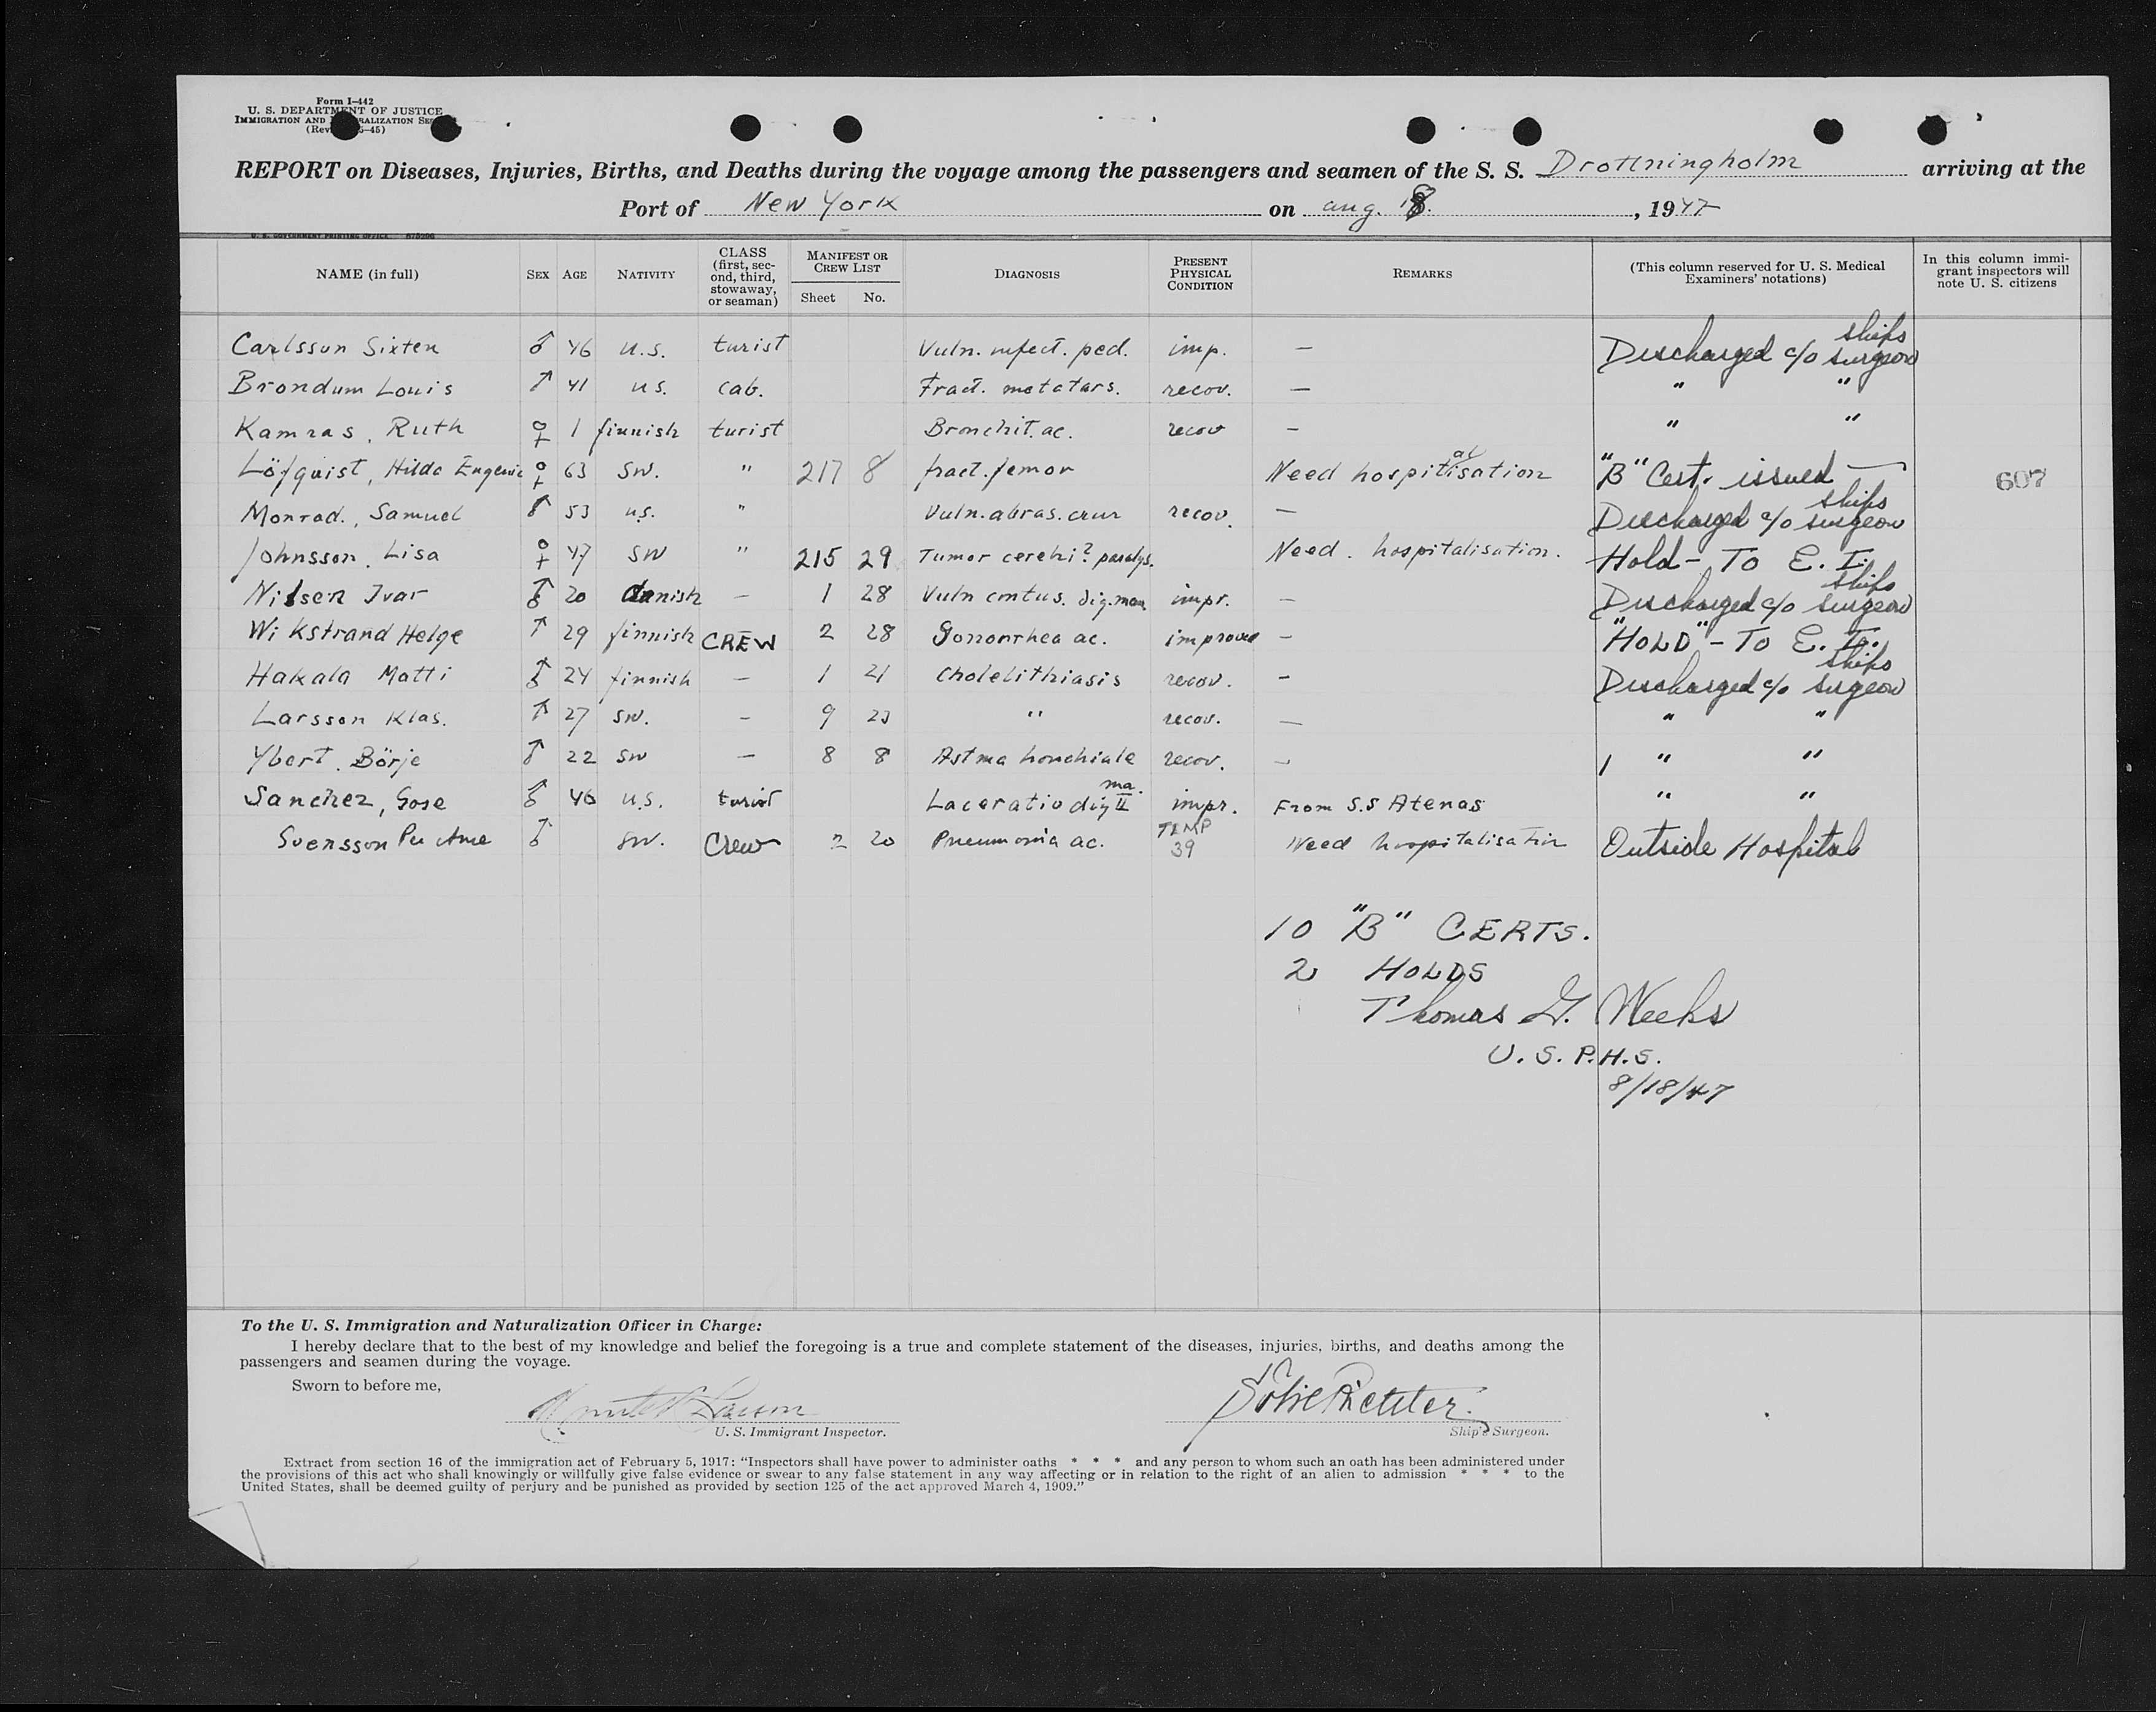 Form I-442
U. S. DEPARTMENT OF JUSTICE
IMMIGRATION AND NATURALIZATION SERVICE
REPORT on Diseases, Injuries, Births, and Deaths during the voyage among the passengers and seamen of the S. S. Drottningholm arriving at the
Port of New York on aug. 18. , 1947
NAME (in full) SEX AGE NATIVITY CLASS (first, second, third, stowaway, or seaman) MANIFEST OR CREW LIST Sheet No. DIAGNOSIS PRESENT PHYSICAL CONDITION REMARKS (This column reserved for U. S. Medical Examiners' notations) In this column immigrant inspectors will note U. S. citizens
Carlsson Sixten ♂ 46 U.S. turist Vuln. infect. ped. imp. — Discharged c/o ships surgeon
Brondum Louis ♂ 41 U.S. cab. Fract. metatars. recov. — " "
Kamras, Ruth ♀ 1 finnish turist Bronchit. ac. recov — " "
Löfquist, Hilda Eugenie ♀ 63 SW. " 217 8 fract. femor Need hospitalisation "B" Cert. issued — 607
Monrad., Samuel ♂ 53 U.S. " Vuln. abras. crur recov. — Discharged c/o ships surgeon
Johnsson. Lisa ♀ 47 SW " 215 29 Tumor cerebri? paralys. Need. hospitalisation. Hold - To E. I.
Nilsen Ivar ♂ 20 danish — 1 28 Vuln contus. dig. man impr. — Discharged c/o ships surgeon
Wikstrand Helge ♂ 29 finnish CREW 2 28 Gonorrhea ac. improved — "HOLD" - To E. I.
Hakala Matti ♂ 24 finnish — 1 21 Cholelithiasis recov. — Discharged c/o ships surgeon
Larsson Klas. ♂ 27 SW. — 9 23 " recov. — " "
Ybert. Börje ♂ 22 SW — 8 8 Astma bonchiale recov. — " "
Sanchez, Gose ♂ 46 U.S. turist Laceratio dig II ma. impr. From S.S Atenas " "
Svensson Per Arne ♂ SW. Crew 2 20 Pneumonia ac. TEMP 39 Need hospitalisation Outside Hospital
10 "B" CERTS.
2 HOLDS
Thomas G. Weeks
U. S. P. H. S.
8/18/47
To the U. S. Immigration and Naturalization Officer in Charge:
I hereby declare that to the best of my knowledge and belief the foregoing is a true and complete statement of the diseases, injuries, births, and deaths among the
passengers and seamen during the voyage.
Sworn to before me,
U. S. Immigrant Inspector.
Ship's Surgeon.
Extract from section 16 of the immigration act of February 5, 1917: "Inspectors shall have power to administer oaths * * * and any person to whom such an oath has been administered under
the provisions of this act who shall knowingly or willfully give false evidence or swear to any false statement in any way affecting or in relation to the right of an alien to admission * * * to the
United States, shall be deemed guilty of perjury and be punished as provided by section 125 of the act approved March 4, 1909."